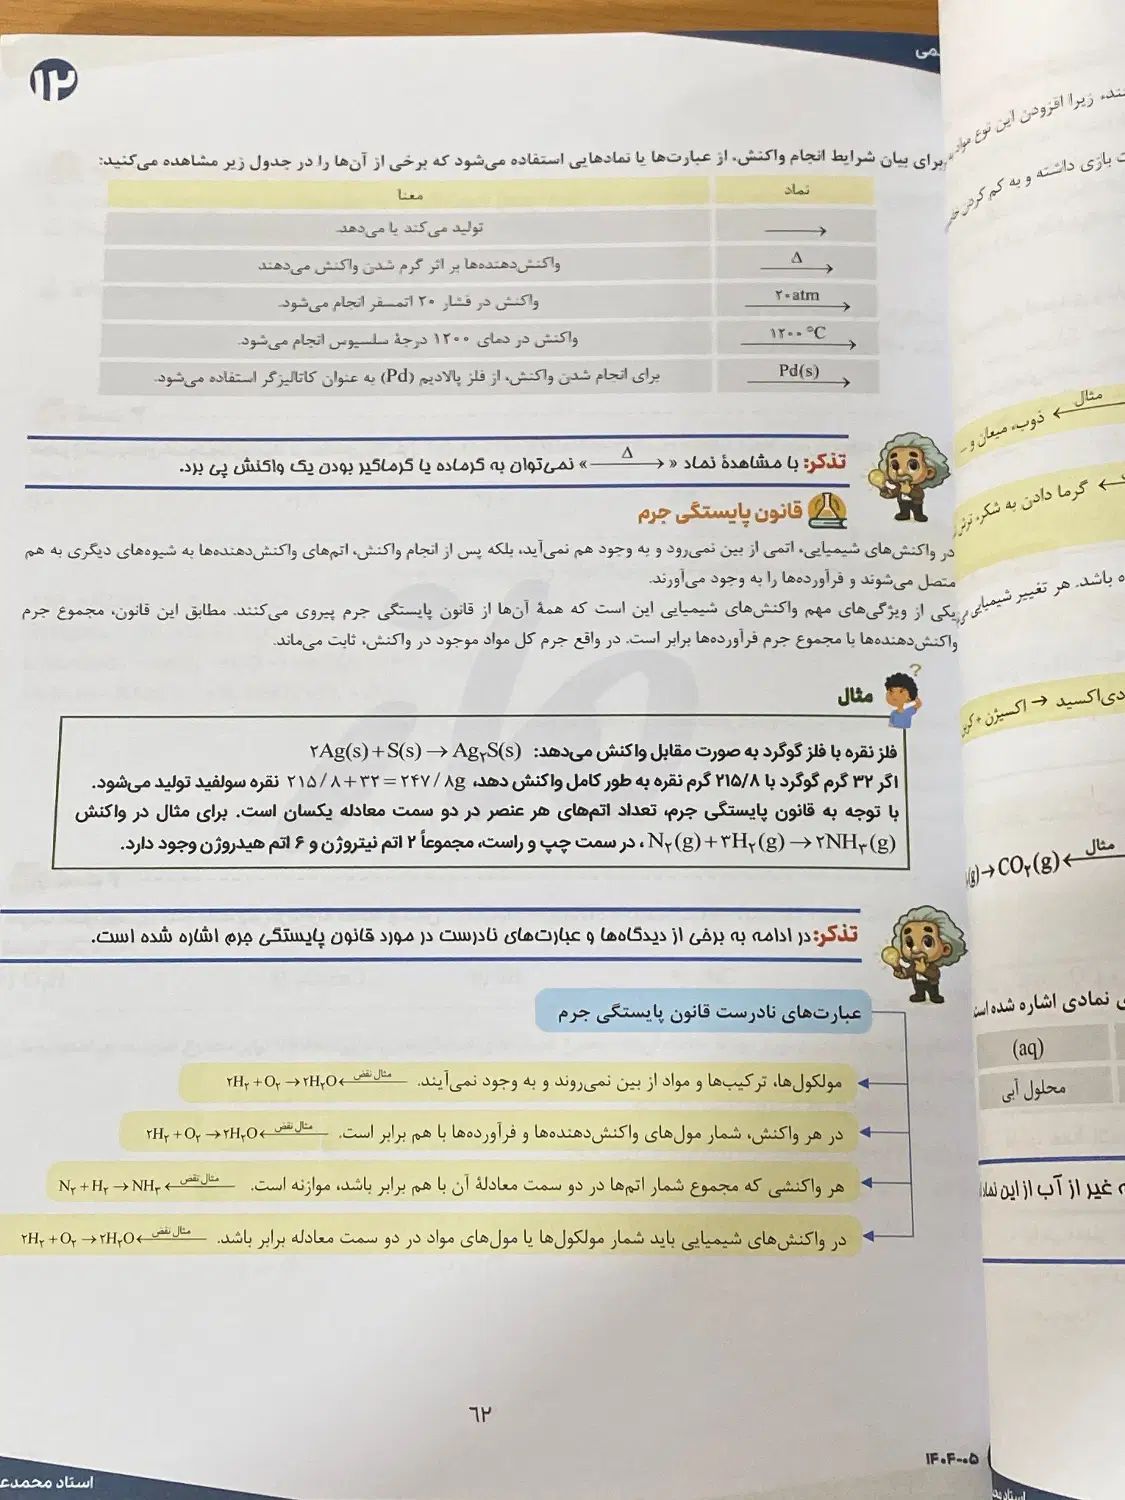 ۱۲
برای بیان شرایط انجام واکنش، از عبارت‌ها یا نمادهایی استفاده می‌شود که برخی از آن‌ها را در جدول زیر مشاهده می‌کنید:
نماد معنا
⟶ تولید می‌کند یا می‌دهد.
Δ⟶ واکنش‌دهنده‌ها بر اثر گرم شدن واکنش می‌دهند
۲۰atm⟶ واکنش در فشار ۲۰ اتمسفر انجام می‌شود.
۱۲۰۰ °C⟶ واکنش در دمای ۱۲۰۰ درجهٔ سلسیوس انجام می‌شود.
Pd(s)⟶ برای انجام شدن واکنش، از فلز پالادیم (Pd) به عنوان کاتالیزگر استفاده می‌شود.
تذکر: با مشاهدهٔ نماد «Δ⟶» نمی‌توان به گرماده یا گرماگیر بودن یک واکنش پی برد.
قانون پایستگی جرم
در واکنش‌های شیمیایی، اتمی از بین نمی‌رود و به وجود هم نمی‌آید، بلکه پس از انجام واکنش، اتم‌های واکنش‌دهنده‌ها به شیوه‌های دیگری به هم
متصل می‌شوند و فرآورده‌ها را به وجود می‌آورند.
یکی از ویژگی‌های مهم واکنش‌های شیمیایی این است که همهٔ آن‌ها از قانون پایستگی جرم پیروی می‌کنند. مطابق این قانون، مجموع جرم
واکنش‌دهنده‌ها با مجموع جرم فرآورده‌ها برابر است. در واقع جرم کل مواد موجود در واکنش، ثابت می‌ماند.
مثال
فلز نقره با فلز گوگرد به صورت مقابل واکنش می‌دهد: ۲Ag(s)+S(s)→Ag۲S(s)
اگر ۳۲ گرم گوگرد با ۲۱۵/۸ گرم نقره به طور کامل واکنش دهد، ۲۱۵/۸+۳۲=۲۴۷/۸g نقره سولفید تولید می‌شود.
با توجه به قانون پایستگی جرم، تعداد اتم‌های هر عنصر در دو سمت معادله یکسان است. برای مثال در واکنش
N۲(g)+۳H۲(g)→۲NH۳(g)، در سمت چپ و راست، مجموعاً ۲ اتم نیتروژن و ۶ اتم هیدروژن وجود دارد.
تذکر: در ادامه به برخی از دیدگاه‌ها و عبارت‌های نادرست در مورد قانون پایستگی جرم اشاره شده است.
عبارت‌های نادرست قانون پایستگی جرم
مولکول‌ها، ترکیب‌ها و مواد از بین نمی‌روند و به وجود نمی‌آیند. مثال نقض ۲H۲+O۲→۲H۲O
در هر واکنش، شمار مول‌های واکنش‌دهنده‌ها و فرآورده‌ها با هم برابر است. مثال نقض ۲H۲+O۲→۲H۲O
هر واکنشی که مجموع شمار اتم‌ها در دو سمت معادلهٔ آن با هم برابر باشد، موازنه است. مثال نقض N۲+H۲→NH۳
در واکنش‌های شیمیایی باید شمار مولکول‌ها یا مول‌های مواد در دو سمت معادله برابر باشد. مثال نقض ۲H۲+O۲→۲H۲O
۶۲
۱۴۰۴-۰۵
استاد
زیرا افزودن این نوع مواد
بازی داشته و به کم کردن
مثال
ذوب، میعان و
گرما دادن به شکر،
باشد. هر تغییر شیمیایی
دی‌اکسید → اکسیژن + کربن
مثال
(g)→CO۲(g)
نمادی اشاره شده است
(aq)
محلول آبی
غیر از آب از این
استاد